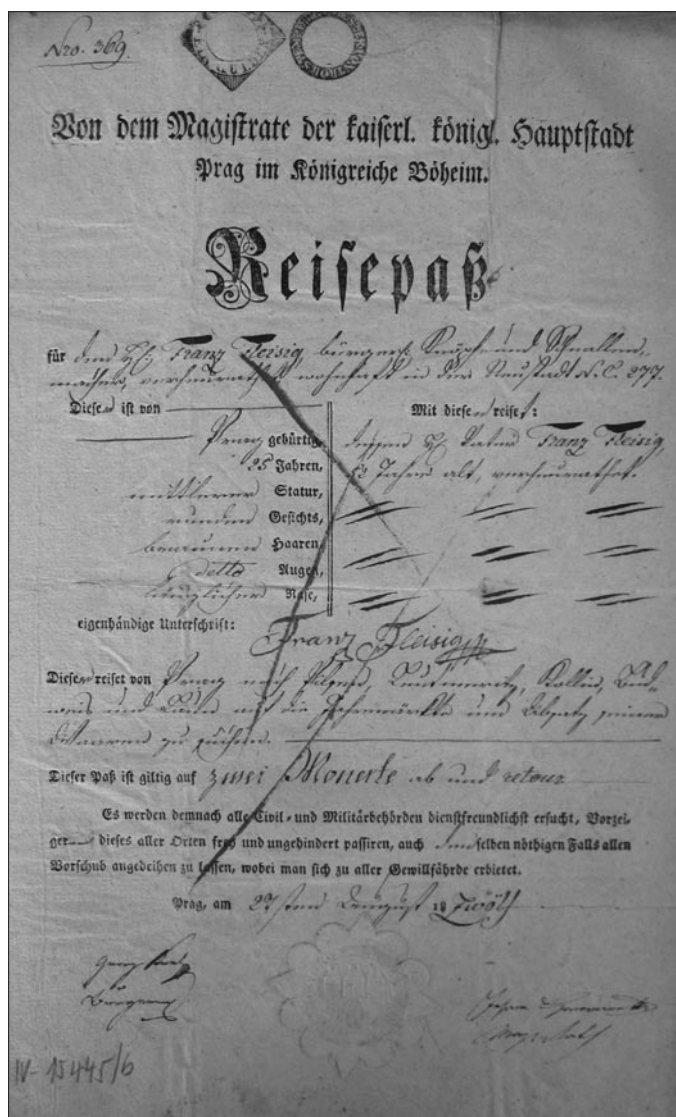 Nro. 369.
GULDEN
Von dem Magistrate der kaiserl. königl. Hauptstadt
Prag im Königreiche Böheim.
Reisepaß
für den H: Franz Fleisig, bürgerl. Knöpf- und Schnallen-
macher, verheurathet wohnhaft in der Neustadt N.C. 277.
Dieser ist von
Prag gebürtig,
25 Jahren,
mittlerer Statur,
runden Gesichts,
braunen Haaren,
detto Augen,
länglicher Nase,
eigenhändige Unterschrift:
Franz Fleisig
Mit diesen reiset:
dessen H. Vater Franz Fleisig,
52 Jahre alt, verheurathet.
Dieser reiset von Prag nach Pilsen, Leutmeritz, Kollin, Bud-
weis und auf die Jahrmärkte um Absatz seiner
Waaren zu suchen.
Dieser Paß ist giltig auf zwei Monate ab und retour
Es werden demnach alle Civil- und Militärbehörden dienstfreundlichst ersucht, Vorzei-
gern dieses aller Orten frey und ungehindert passiren, auch demselben nöthigen Falls allen
Vorschub angedeihen zu lassen, wobei man sich zu aller Gewillfährde erbietet.
Prag, am 27sten August 18 Zwölf
IV-15445/6